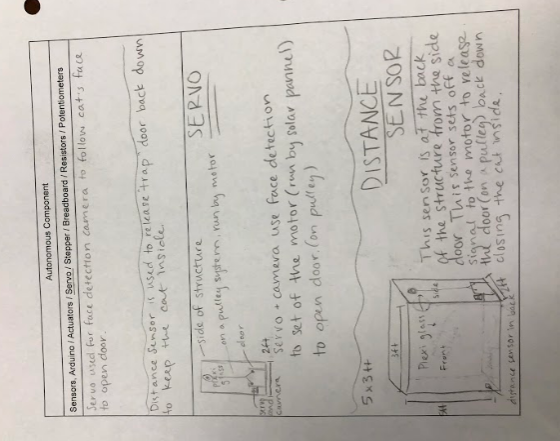 Autonomous Component
Sensors, Arduino / Actuators / Servo / Stepper / Breadboard / Resistors / Potentiometers
Servo used for face detection camera to follow cat's face
to open door.
Distance Sensor is used to release "trap" door back down
to keep the cat inside.
SERVO
side of structure
on a pulley system, run by motor
door
2ft
camera
servo + camera use face detection
to set of the motor (run by solar pannel)
to open door. (on pulley)
DISTANCE
SENSOR
5x3ft
3ft
Plexi glass
side
Front
5ft
2ft
distance sensor in back
This sensor is at the back
of the structure from the side
door. This sensor sets off a
signal to the motor to release
the door (on a pulley) back down
closing the cat inside.